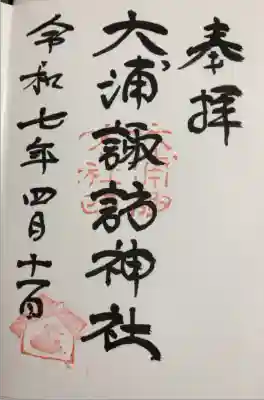 奉拝
大浦諏訪神社
令和七年四月十一日